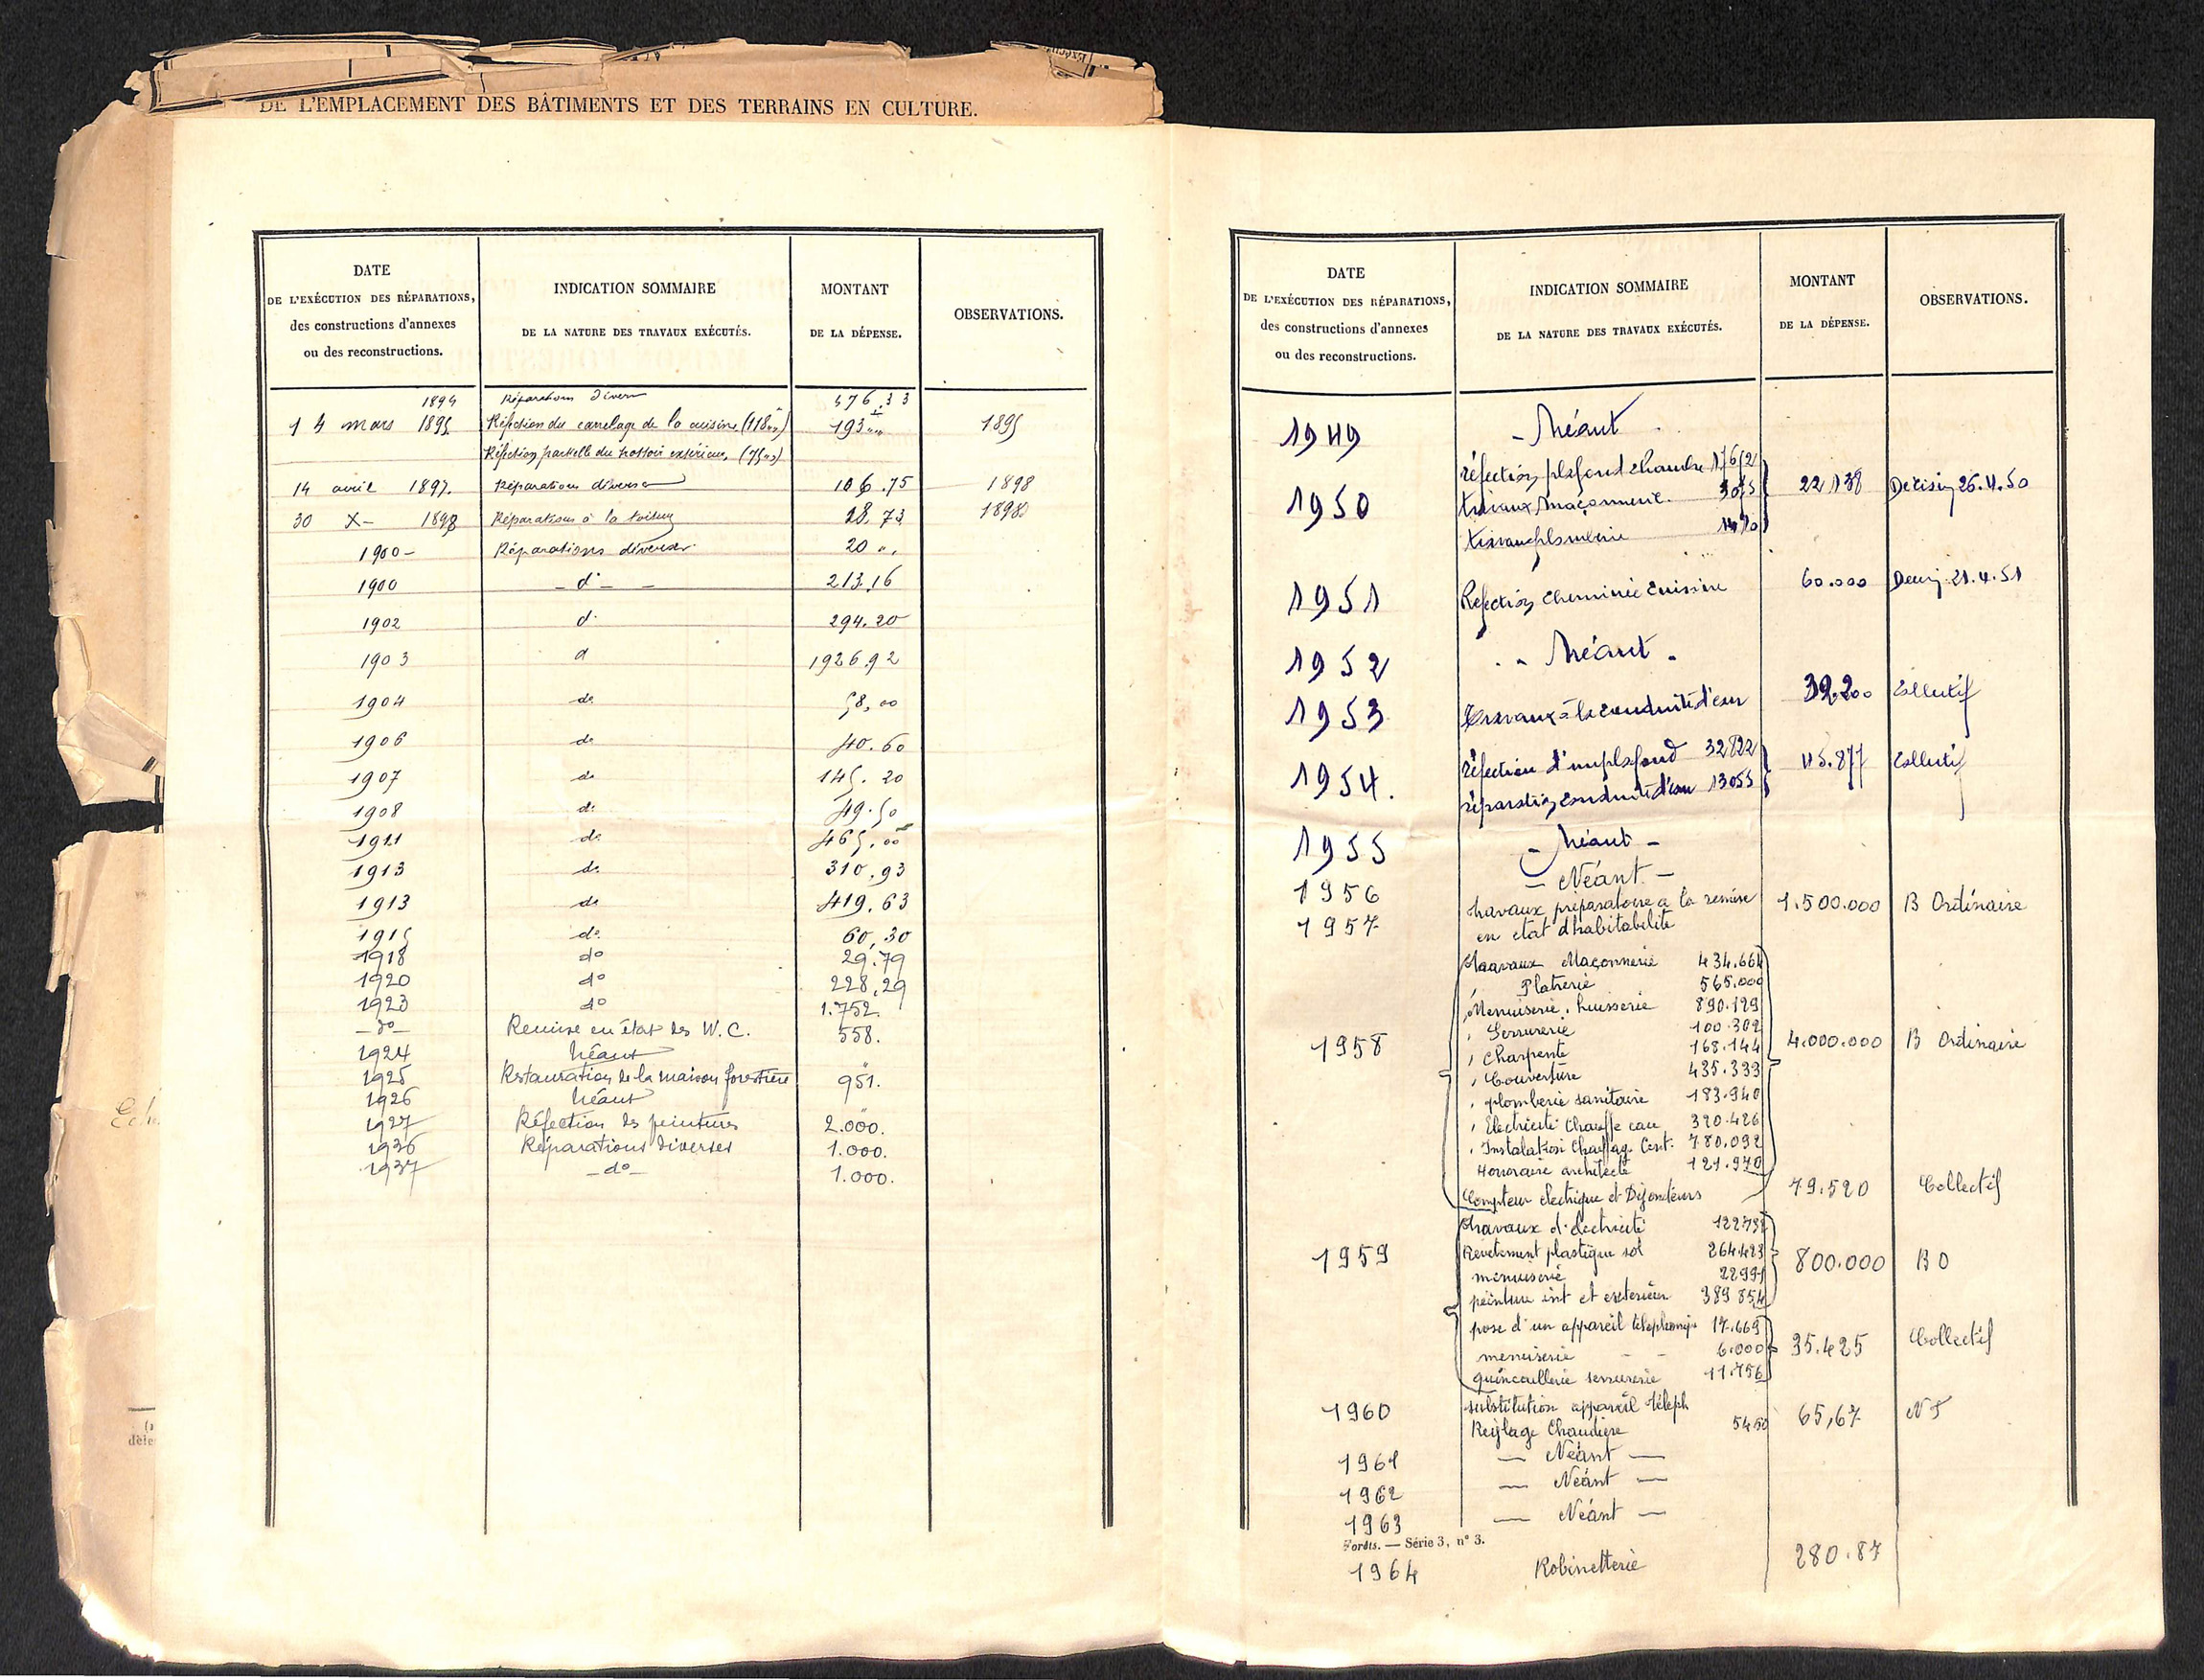 DE L'EMPLACEMENT DES BÂTIMENTS ET DES TERRAINS EN CULTURE.
DATE
DE L'EXÉCUTION DES RÉPARATIONS,
des constructions d'annexes
ou des reconstructions.
INDICATION SOMMAIRE
DE LA NATURE DES TRAVAUX EXÉCUTÉS.
MONTANT
DE LA DÉPENSE.
OBSERVATIONS.
1894 Réparations diverses 476.33
14 mars 1895 Réfection du carrelage de la cuisine (118 ) 193 1895
Réfection partielle du trottoir extérieur, (75 )
14 avril 1897. Réparations diverses 106.75 1898
30 X- 1898 Réparations à la toiture 28.73 1898
1900- Réparations diverses 20 "
1900 - d° - 213.16
1902 d° 294.20
1903 d 1926.92
1904 do 58,00
1906 do 40.60
1907 do 145.20
1908 do 49.50
1911 do 465,00
1913 do 310.93
1913 do 419.63
1915 do 60,30
1918 do 29.79
1920 do 228,29
1923 do 1.752.
-do- Remise en état des W.C. 558.
1924 Néant
1925 Restauration de la maison forestière 951.
1926 Néant
1927 Réfection des peintures 2.000.
1936 Réparations diverses 1.000.
1937 -do- 1.000.
DATE
DE L'EXÉCUTION DES RÉPARATIONS,
des constructions d'annexes
ou des reconstructions.
INDICATION SOMMAIRE
DE LA NATURE DES TRAVAUX EXÉCUTÉS.
MONTANT
DE LA DÉPENSE.
OBSERVATIONS.
1949 - Néant -
réfection plafond chambre 17612
1950 travaux maçonnerie 3075 22138 Décision 26.4.50
travaux plomberie
1951 Refection cheminée cuisine 60.000 21.4.51
1952 - Néant -
1953 Travaux à la conduite d'eau 39.200 Collectif
réfection d'un plafond 32822
1954. réparation conduite d'eau 13055 45.877 Collectif
1955 - Néant -
1956 - Néant -
1957 travaux préparatoire a la remise 1.500.000 B Ordinaire
en etat d'habitabilité
Travaux Maçonnerie 434.664
" Platrerie 565.000
" Menuiserie, huisserie 890.129
" Serrurerie 100.302
1958 " Charpente 168.144 4.000.000 B Ordinaire
" Couverture 435.333
" plomberie sanitaire 183.940
" Electricité Chauffe eau 320.426
" Instalation Chauffag. Cent. 780.092
Honoraire architecte 121.970
Compteur electrique et Disjoncteurs 79.520 Collectif
travaux d'electricité 122732
1959 Revetement plastique sol 264.423 800.000 B O
menuiserie 22991
peinture int et exterieur 389 854
pose d'un appareil telephoniq. 17.669
menuiserie - - 6.000 35.425 Collectif
quincaillerie serrurerie 11.756
1960 substitution appareil téleph 65,67
Reglage Chaudière 54.50
1961 — Néant —
1962 — Néant —
1963 — Néant —
Forêts. — Série 3, n° 3.
1964 Robinetterie 280.87